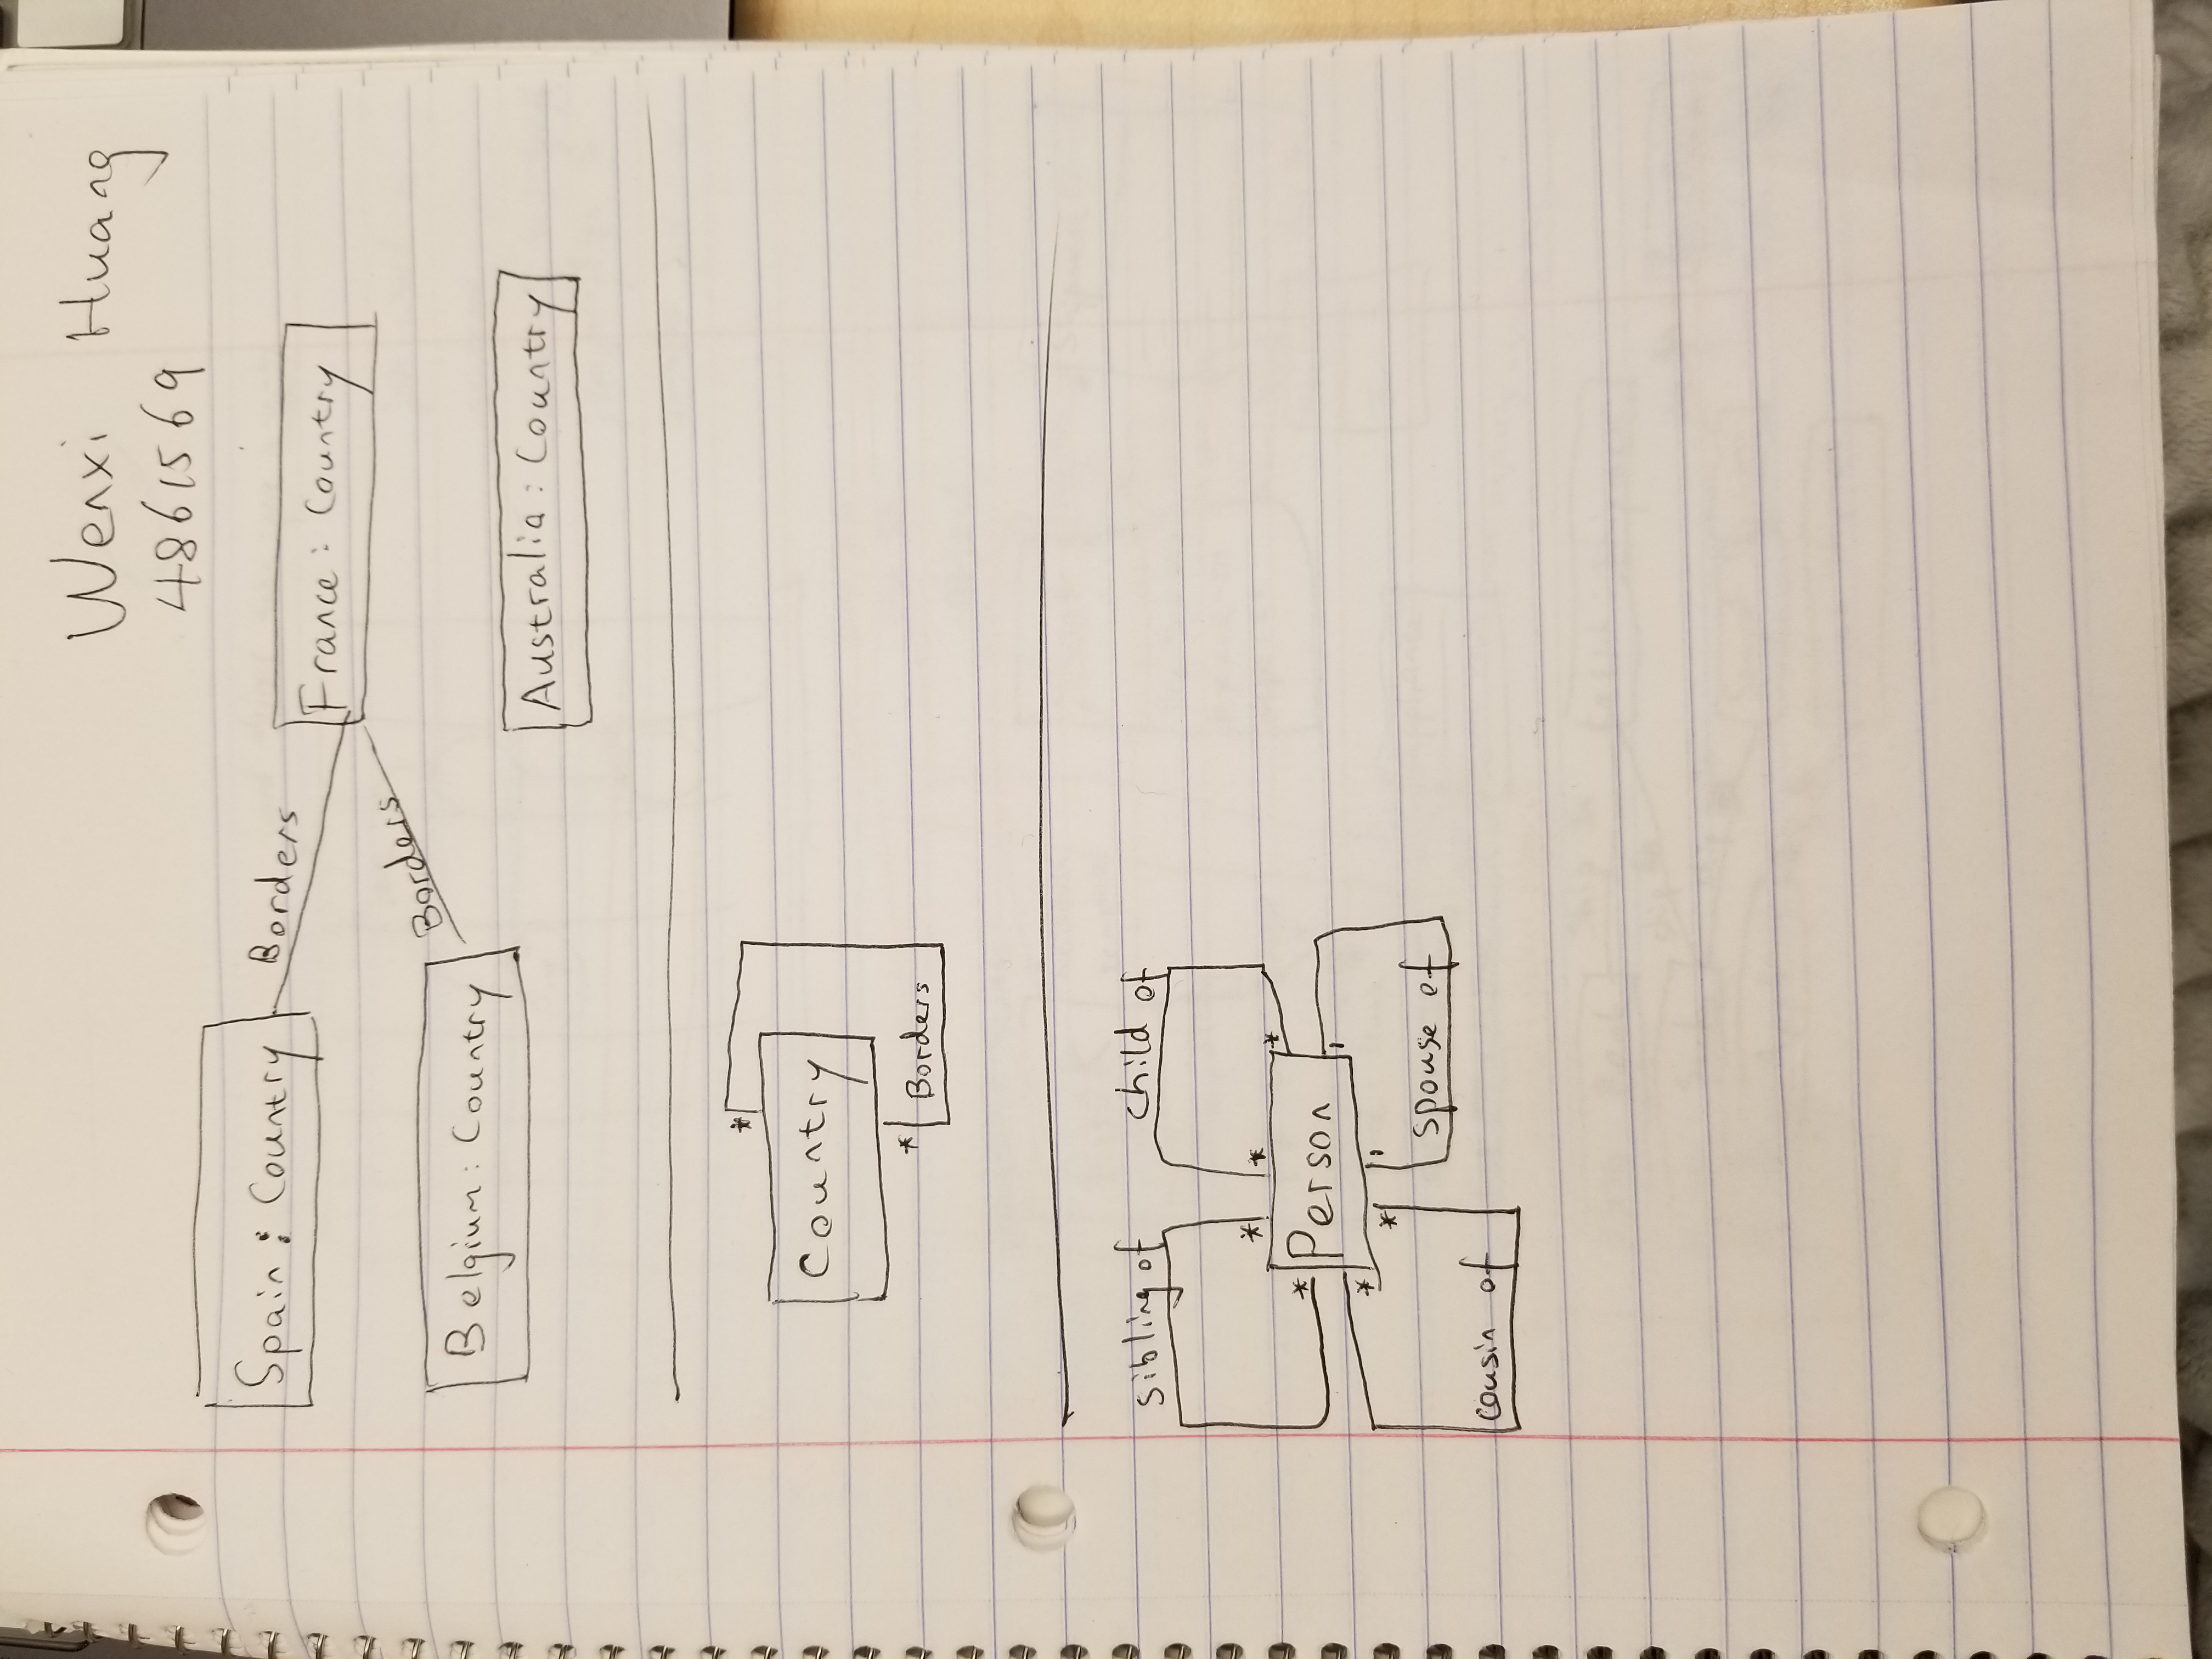 Wenxi Huang
4861569
Spain : Country
Borders
France : Country
Borders
Belgium : Country
Australia : Country
*
Country
*
Borders
sibling of
child of
*
*
*
*
Person
1
*
*
1
spouse of
cousin of